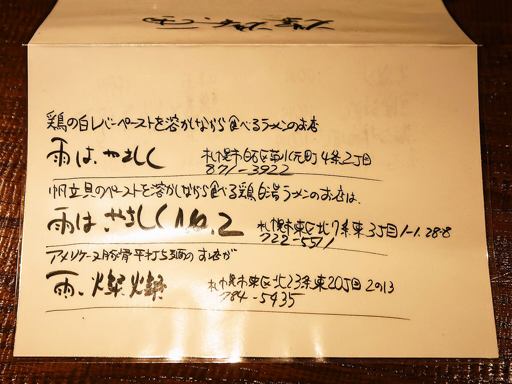 鶏の白レバーペーストを溶かしながら食べるラーメンのお店
雨は、やさしく 札幌市白石区菊水元町4条2丁目
871-3922
帆立貝のペーストを溶かしながら食べる鶏白湯ラーメンのお店は、
雨は、やさしく No.2 札幌市東区北7条東3丁目1-1.28-8
722-5511
アメリケーヌ豚骨平打ち麺のお店が
雨、燦燦 札幌市東区北23条東20丁目 20-13
784-5435